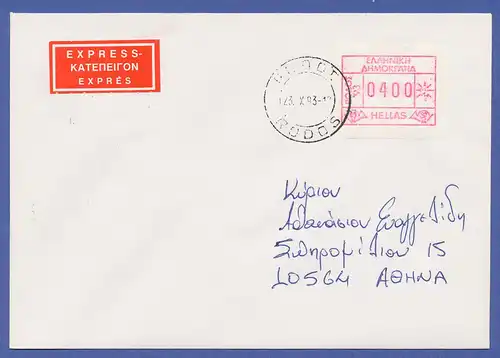 EXPRESS-
ΚΑΤΕΠΕΙΓΟΝ
EXPRÉS
ΕΛΛΗΝΙΚΗ
ΔΗΜΟΚΡΑΤΙΑ
0400
HELLAS
RODOS
Κύριον
Αθανάσιον Ευαγγελίδη
Σπηρομήλιου 15
10564 ΑΘΗΝΑ